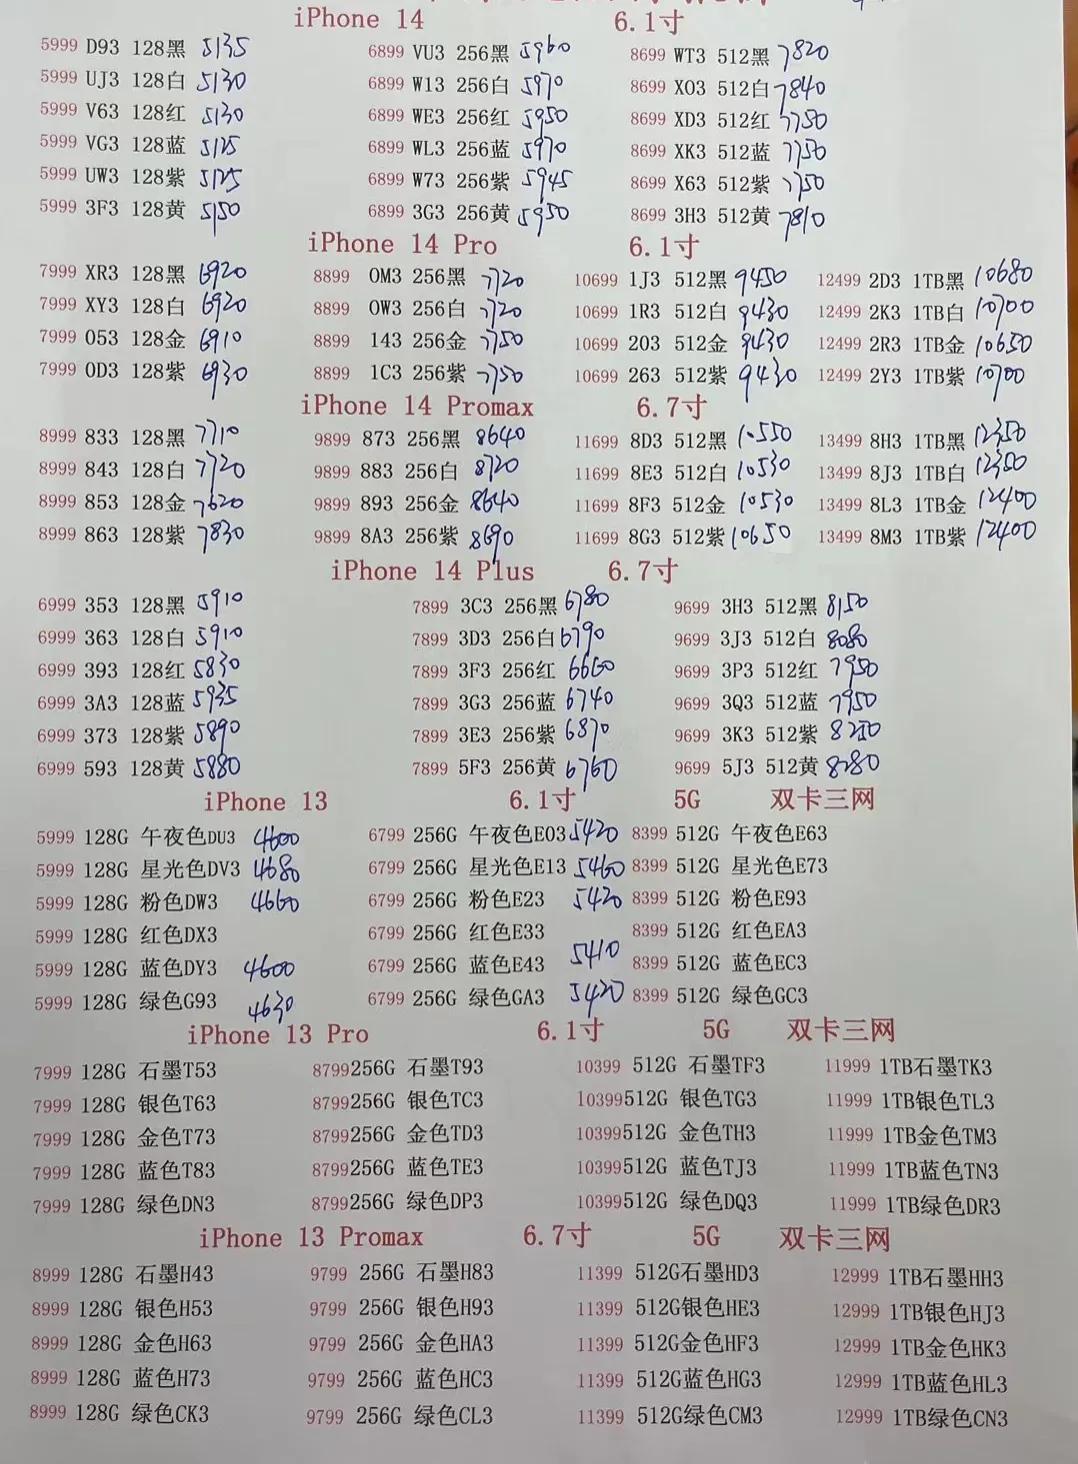 iPhone 14 6.1寸
5999 D93 128黑 5135 6899 VU3 256黑 5960 8699 WT3 512黑 7820
5999 UJ3 128白 5130 6899 W13 256白 5970 8699 X03 512白 7840
5999 V63 128红 5130 6899 WE3 256红 5950 8699 XD3 512红 7750
5999 VG3 128蓝 5125 6899 WL3 256蓝 5970 8699 XK3 512蓝 7750
5999 UW3 128紫 5125 6899 W73 256紫 5945 8699 X63 512紫 7750
5999 3F3 128黄 5150 6899 3G3 256黄 5950 8699 3H3 512黄 7810
iPhone 14 Pro 6.1寸
7999 XR3 128黑 6920 8899 0M3 256黑 7720 10699 1J3 512黑 9450 12499 2D3 1TB黑 10680
7999 XY3 128白 6920 8899 0W3 256白 7720 10699 1R3 512白 9430 12499 2K3 1TB白 10700
7999 053 128金 6910 8899 143 256金 7750 10699 203 512金 9430 12499 2R3 1TB金 10650
7999 0D3 128紫 6930 8899 1C3 256紫 7750 10699 263 512紫 9430 12499 2Y3 1TB紫 10700
iPhone 14 Promax 6.7寸
8999 833 128黑 7710 9899 873 256黑 8640 11699 8D3 512黑 10550 13499 8H3 1TB黑 12350
8999 843 128白 7720 9899 883 256白 8720 11699 8E3 512白 10530 13499 8J3 1TB白 12350
8999 853 128金 7620 9899 893 256金 8640 11699 8F3 512金 10530 13499 8L3 1TB金 12400
8999 863 128紫 7830 9899 8A3 256紫 8690 11699 8G3 512紫 10650 13499 8M3 1TB紫 12400
iPhone 14 Plus 6.7寸
6999 353 128黑 5910 7899 3C3 256黑 6780 9699 3H3 512黑 8150
6999 363 128白 5910 7899 3D3 256白 6790 9699 3J3 512白 8080
6999 393 128红 5830 7899 3F3 256红 6660 9699 3P3 512红 7950
6999 3A3 128蓝 5935 7899 3G3 256蓝 6740 9699 3Q3 512蓝 7950
6999 373 128紫 5890 7899 3E3 256紫 6870 9699 3K3 512紫
6999 593 128黄 5880 7899 5F3 256黄 6760 9699 5J3 512黄 8280
iPhone 13 6.1寸 5G 双卡三网
5999 128G 午夜色DU3 4600 6799 256G 午夜色E03 5420 8399 512G 午夜色E63
5999 128G 星光色DV3 4680 6799 256G 星光色E13 5460 8399 512G 星光色E73
5999 128G 粉色DW3 4660 6799 256G 粉色E23 5420 8399 512G 粉色E93
5999 128G 红色DX3 6799 256G 红色E33 8399 512G 红色EA3
5999 128G 蓝色DY3 4600 6799 256G 蓝色E43 5410 8399 512G 蓝色EC3
5999 128G 绿色G93 4630 6799 256G 绿色GA3 5420 8399 512G 绿色GC3
iPhone 13 Pro 6.1寸 5G 双卡三网
7999 128G 石墨T53 8799256G 石墨T93 10399 512G 石墨TF3 11999 1TB石墨TK3
7999 128G 银色T63 8799256G 银色TC3 10399512G 银色TG3 11999 1TB银色TL3
7999 128G 金色T73 8799256G 金色TD3 10399512G 金色TH3 11999 1TB金色TM3
7999 128G 蓝色T83 8799256G 蓝色TE3 10399512G 蓝色TJ3 11999 1TB蓝色TN3
7999 128G 绿色DN3 8799256G 绿色DP3 10399512G 绿色DQ3 11999 1TB绿色DR3
iPhone 13 Promax 6.7寸 5G 双卡三网
8999 128G 石墨H43 9799 256G 石墨H83 11399 512G石墨HD3 12999 1TB石墨HH3
8999 128G 银色H53 9799 256G 银色H93 11399 512G银色HE3 12999 1TB银色HJ3
8999 128G 金色H63 9799 256G 金色HA3 11399 512G金色HF3 12999 1TB金色HK3
8999 128G 蓝色H73 9799 256G 蓝色HC3 11399 512G蓝色HG3 12999 1TB蓝色HL3
8999 128G 绿色CK3 9799 256G 绿色CL3 11399 512G绿色CM3 12999 1TB绿色CN3